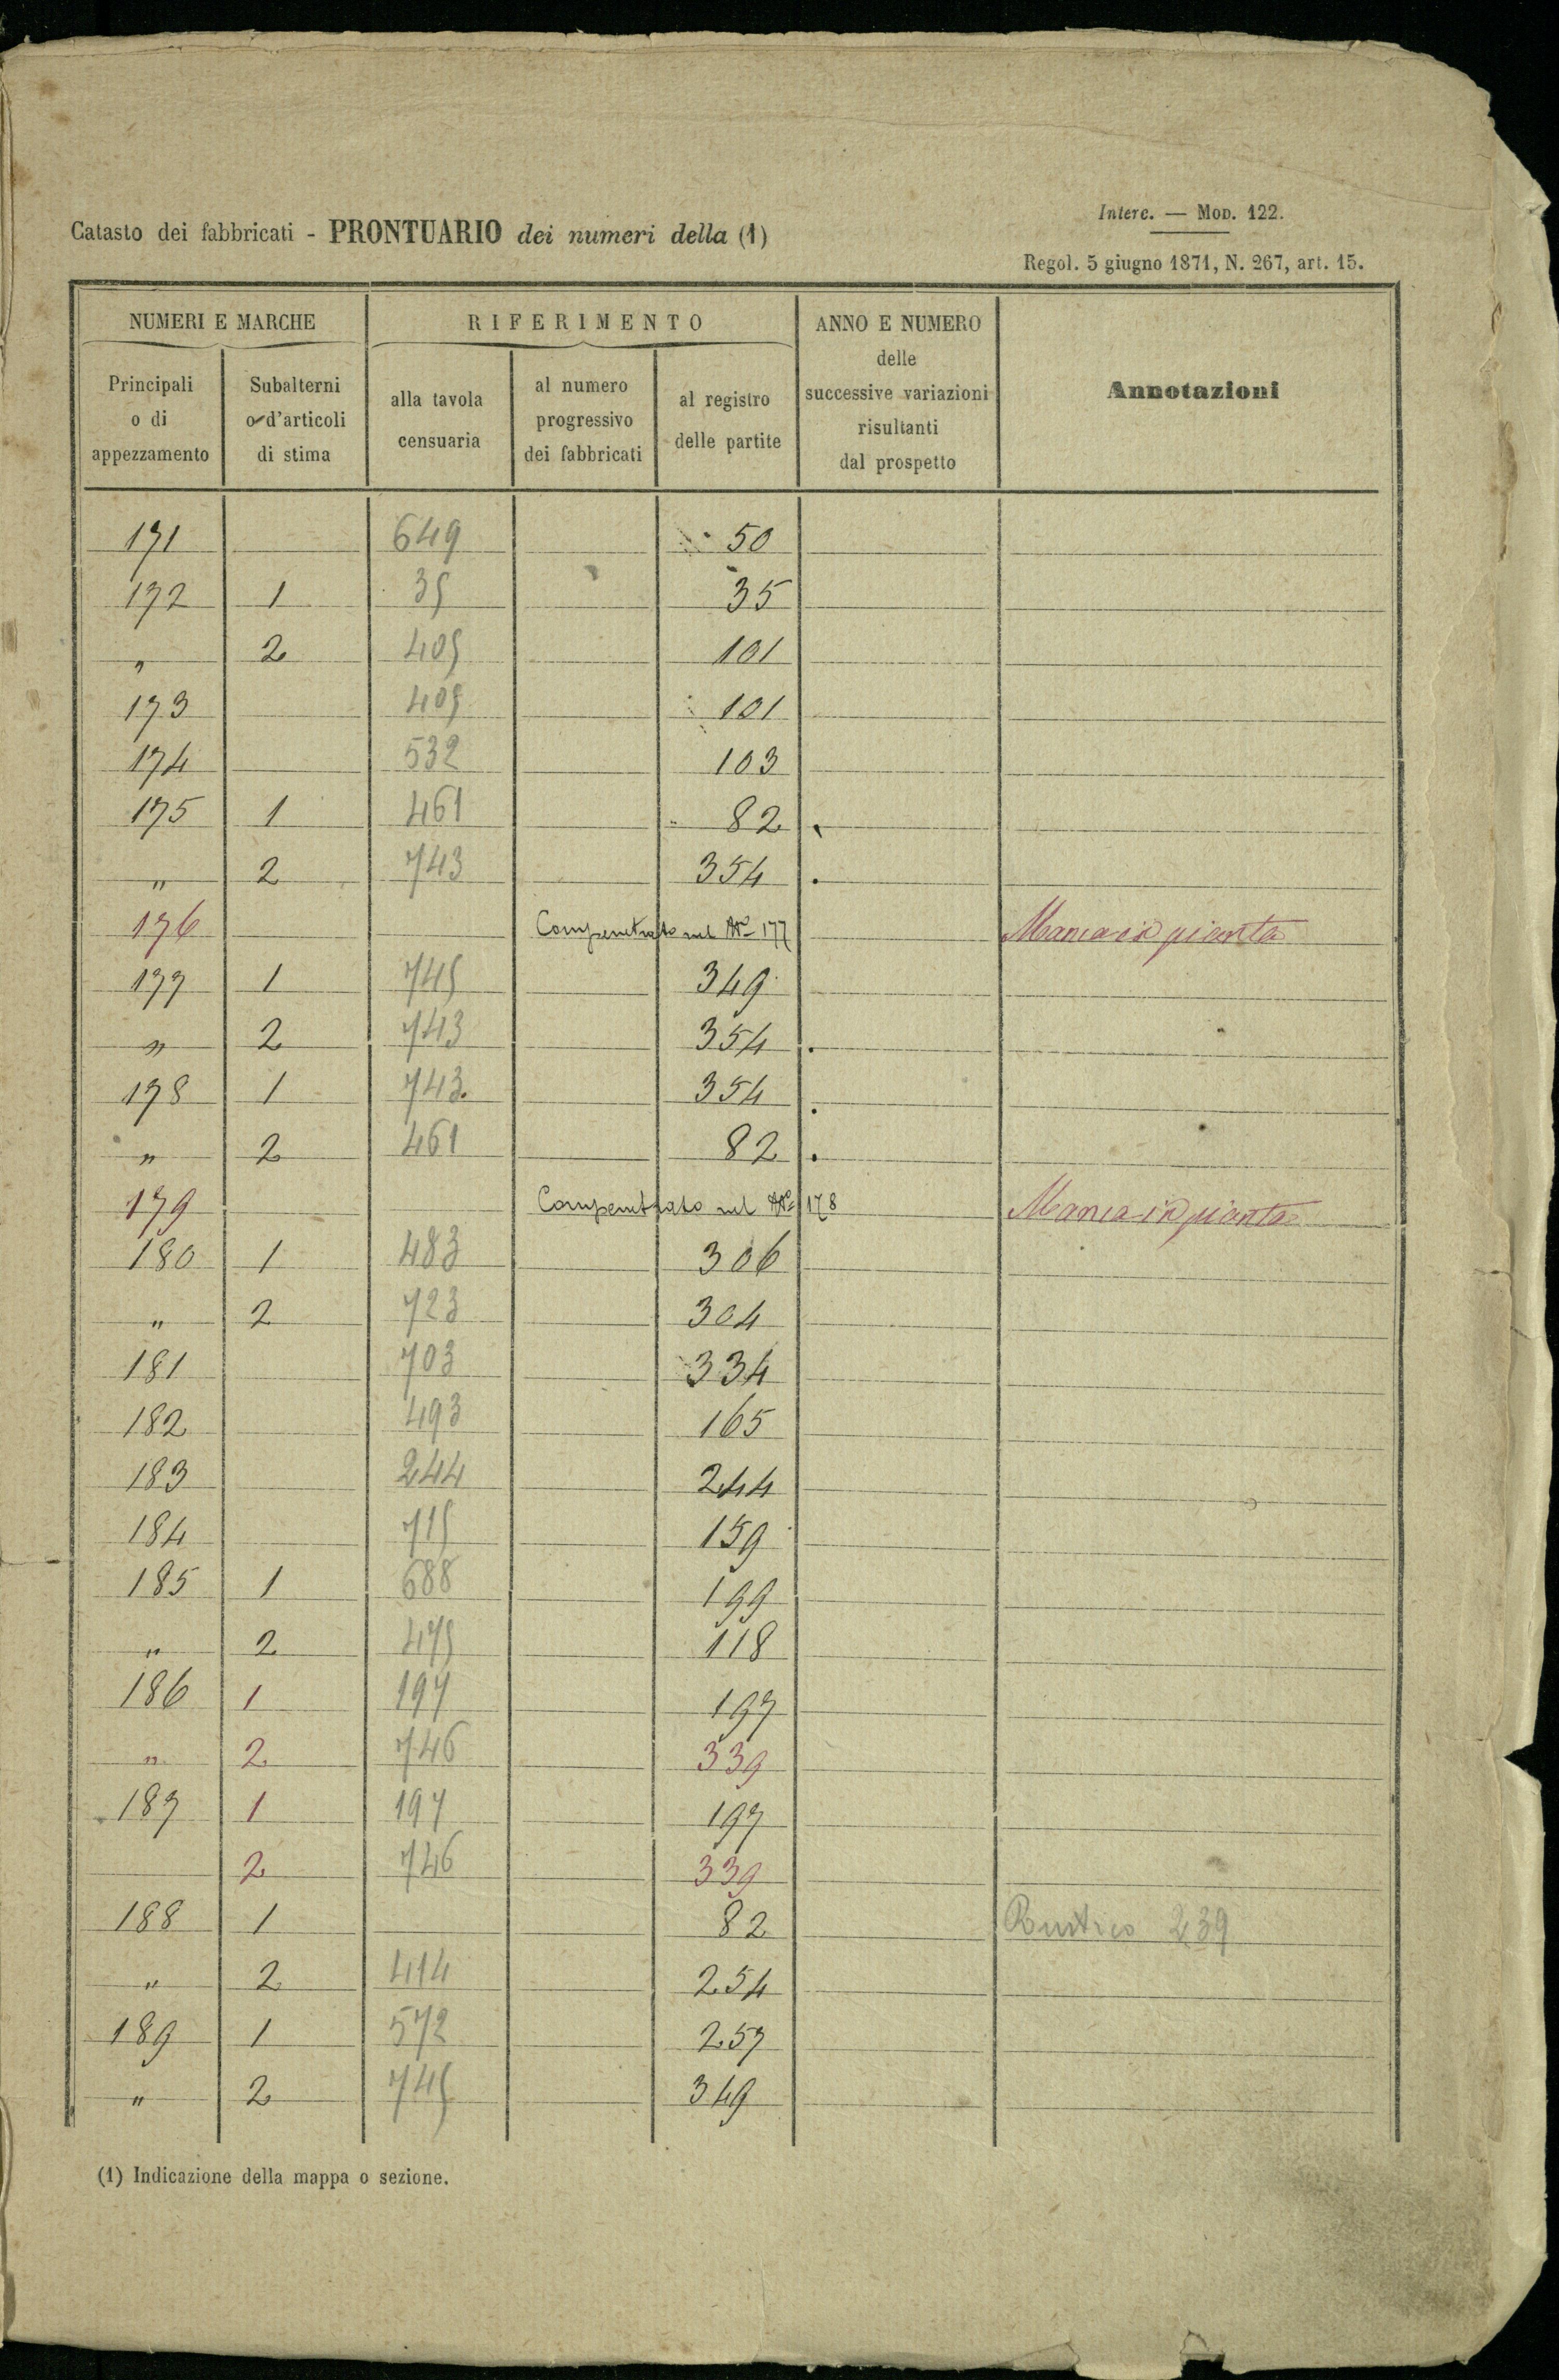 Catasto dei fabbricati - PRONTUARIO dei numeri della (1)
Interc. — MOD. 122.
Regol. 5 giugno 1871, N. 267, art. 15.
NUMERI E MARCHE RIFERIMENTO ANNO E NUMERO delle successive variazioni risultanti dal prospetto Annotazioni
Principali o di appezzamento Subalterni o d'articoli di stima alla tavola censuaria al numero progressivo dei fabbricati al registro delle partite
171 649 50
172 1 35 35
" 2 405 101
173 405 101
174 532 103
175 1 461 82
" 2 743 354
176 Compenetrato nel N° 177 Manca in pianta
177 1 745 349
" 2 743 354
178 1 743 354
" 2 461 82
179 Compenetrato nel N° 178 Manca in pianta
180 1 483 306
" 2 723 304
181 703 334
182 493 165
183 244 244
184 715 159
185 1 688 199
" 2 475 118
186 1 197 197
" 2 746 339
187 1 197 197
2 746 339
188 1 82 Rustico 239
" 2 414 254
189 1 572 257
" 2 745 349
(1) Indicazione della mappa o sezione.